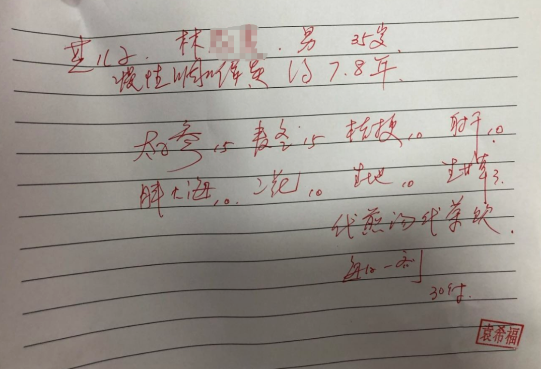 林 男 35岁
慢性咽喉炎 约7.8年
太子参15 麦冬15 桔梗10 射干10
胖大海10 二花10 生地10 生甘草3
代煎汤代茶饮
每日一剂
30付
袁希福